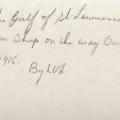 the Gulf of St Lawrence
ship on the way Over
1916.
By LVH